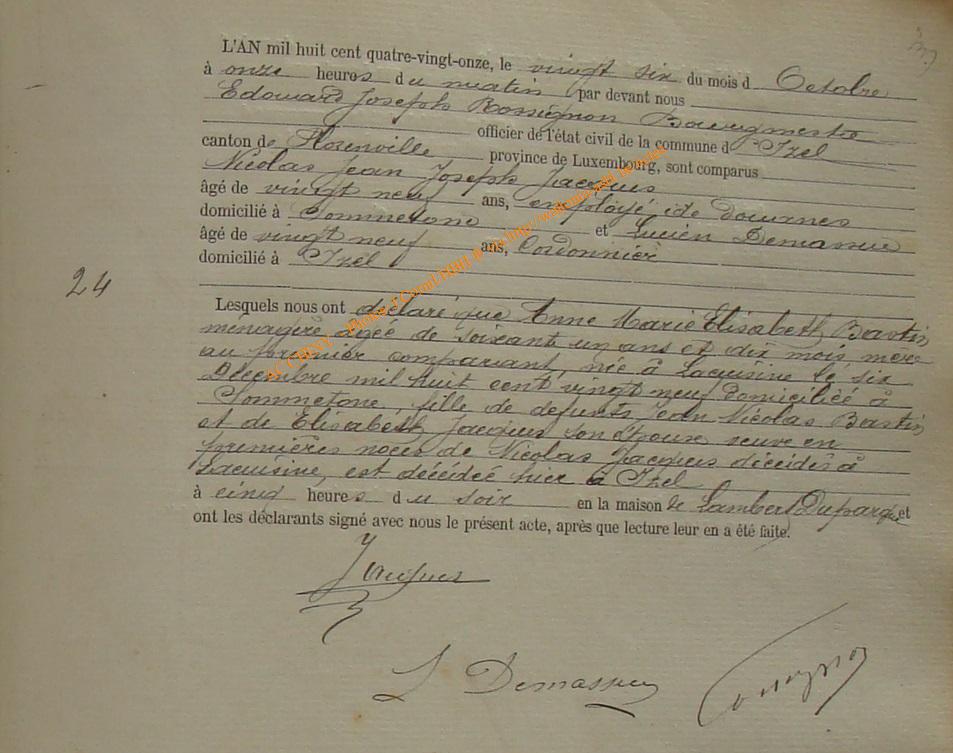 L'AN mil huit cent quatre-vingt-onze, le vingt six du mois d Octobre
à onze heures du matin par devant nous
Edouard Joseph Rossignon Bourgmestre
officier de l'état civil de la commune d Izel
canton de Florenville province de Luxembourg, sont comparus
Nicolas Jean Joseph Jacques
âgé de vingt neuf ans, employé de douanes
domicilié à Sommethone et Lucien Demasure
âgé de vingt neuf ans, Cordonnier
domicilié à Izel
24
Lesquels nous ont déclaré que Anne Marie Elisabeth Bastin
menagère agée de soixante un ans et dix mois mere
au premier comparant, née à Lacuisine le six
Décembre mil huit cent vingt neuf domiciliée à
Sommetone, fille de defunts Jean Nicolas Bastin
et de Elisabeth Jacques son épouse veuve en
premières noces de Nicolas Jacques décédés à
Lacuisine, est décédée hier à Izel
à cinq heures du soir en la maison de Lambert Duparque et
ont les déclarants signé avec nous le présent acte, après que lecture leur en a été faite.
Jacques
L Demasure